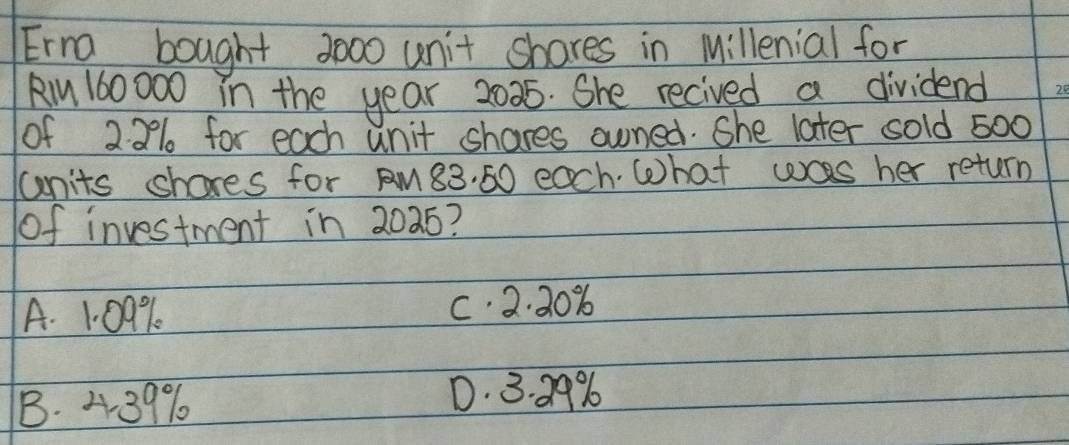 Erna bought 2000 unit shares in Millenial for
RM 160 000 in the year 2025. She recived a dividend
of 2.2% for each unit shares owned. She later sold 500
units shares for RM 83.50 each. What was her return
of investment in 2025?
A. 1.09% C. 2.20%
B. 4.39% D. 3.29%